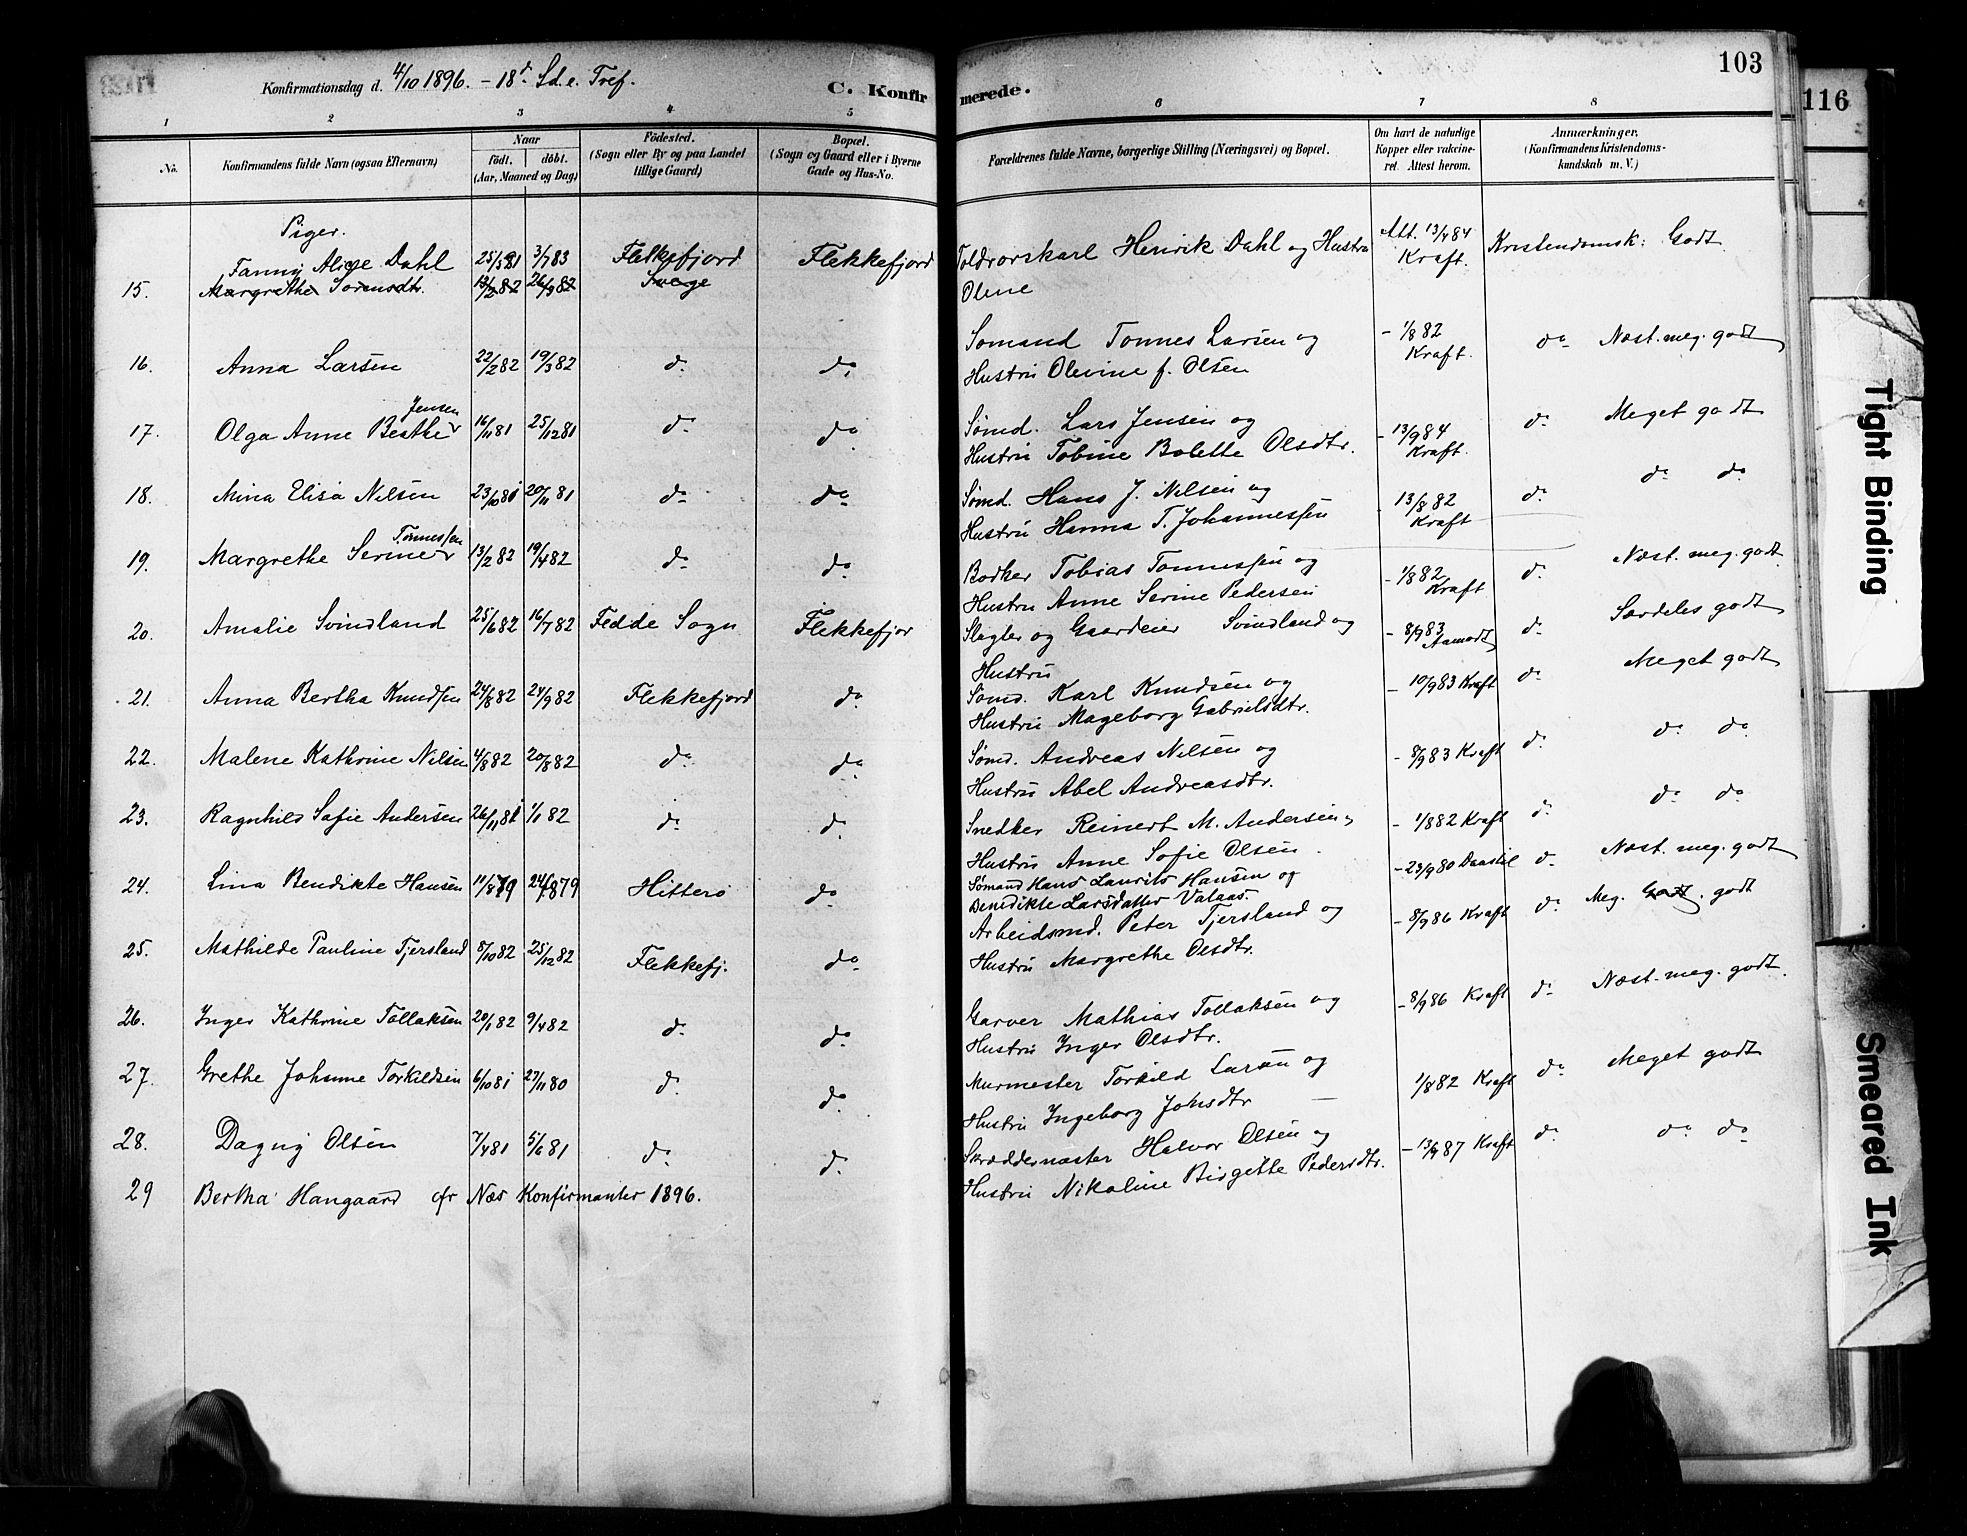 103
116
Konfirmationsdag d. 4/10 1896. - 18d. Sd. e. Tref.
C. Konfirmerede.
1 2 3 4 5 6 7 8
No.
Konfirmandens fulde Navn (ogsaa Efternavn)
Naar
födt. döbt.
(Aar, Maaned og Dag)
Födested.
(Sogn eller By og paa Landet
tillige Gaard)
Bopæl.
(Sogn og Gaard eller i Byerne
Gade og Hus-No.
Forældrenes fulde Navne, borgerlige Stilling (Næringsvei) og Bopæl.
Om havt de naturlige
Kopper eller vakcine-
ret. Attest herom.
Anmærkninger.
(Konfirmandens Kristendoms-
kundskab m. V.)
Piger.
Fanny Alice Dahl 25/5 81 3/7 83 Flekkefjord Flekkefjord Toldrorskarl Henrik Dahl og Hustru Att. 13/9 84 Kristendomsk: Godt
15. Margrethe Sorensdt. 13/2 82 26/3 82 Olene Kraft.
16. Anna Larsen 22/2 82 19/3 82 do. do. Sømand Tønnes Larsen og - 1/8 82 do. Næst. meg. godt
Hustru Olevine f. Olsen Kraft.
Jensen
17. Olga Anne Beathe 16/11 81 25/12 81 do. do. Sømd. Lars Jensen og - 13/9 84 do. Meget godt
Hustru Tobine Bolette Olsdtr. Kraft.
18. Mina Elisa Nilsen 23/10 81 20/11 81 do. do. Sømd. Hans J. Nilsen og 13/8 82 do. do. do.
Hustru Hanna T. Johannessen Kraft
Tønnessen
19. Margrethe Serine 13/2 82 19/4 82 do. do. Bødker Tobias Tønnessen og - 1/8 82 do. Næst. meg. godt
Hustru Anne Serine Pedersen Kraft
20. Amalie Svindland 25/6 82 16/7 82 Fedde Sogn Flekkefjor Slagter og Gaardeier Svindland og - 8/9 83 Aamodt do. Særdeles godt
Hustru
21. Anna Bertha Knudsen 24/8 82 24/9 82 Flekkefjord do. Sømd. Karl Knudsen og - 10/9 83 Kraft do. Meget godt
Hustru Mageborg Gabrielsdtr.
22. Malene Kathrine Nilsen 4/8 82 20/8 82 do. do. Sømd. Andreas Nilsen og - 8/9 83 Kraft do. do. do.
Hustru Abel Andreasdtr.
23. Ragnhild Sofie Andersen 26/11 81 1/1 82 do. do. Snedker Reinert M. Andersen og - 1/8 82 Kraft do. do. do.
Hustru Anne Sofie Olsen.
24. Lina Bendikte Hansen 11/8 79 24/8 79 Hitterø do. Sømand Hans Laurits Hansen og - 23/9 80 Daastil do. Næst. meg. godt
Benedikte Larsdatter Valaas.
25. Mathilde Pauline Tjersland 8/10 82 25/12 82 Flekkefj. do. Arbeidsmd. Peter Tjersland og - 8/9 86 Kraft do. Meg. Godt. godt
Hustru Margrethe Olsdtr.
26. Inger Kathrine Tollaksen 20/1 82 9/4 82 do. do. Garver Mathias Tollaksen og - 8/9 86 Kraft do. Næst. meg. godt.
Hustru Inger Olsdtr.
27. Grethe Johanne Torkildsen 6/10 81 27/11 80 do. do. Murmester Torkild Larsen og 1/8 82 Kraft do. Meget godt
Hustru Ingeborg Johsdtr
28. Dagny Olsen 7/4 81 5/6 81 do. do. Skræddermester Halvor Olsen og - 13/9 87 Kraft do. do. do.
Hustru Nikoline Birgitte Pedersdtr.
29 Bertha Hangaard cfr Næs Konfirmanter 1896.
Tight Binding
Smeared Ink